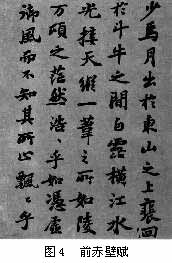 少焉月出於東山之上裴回
於斗牛之間白露橫江水
光接天縱一葦之所如陵
万頃之茫然浩〻乎如馮虛
御風而不知其所止飄〻乎
图4 前赤壁赋